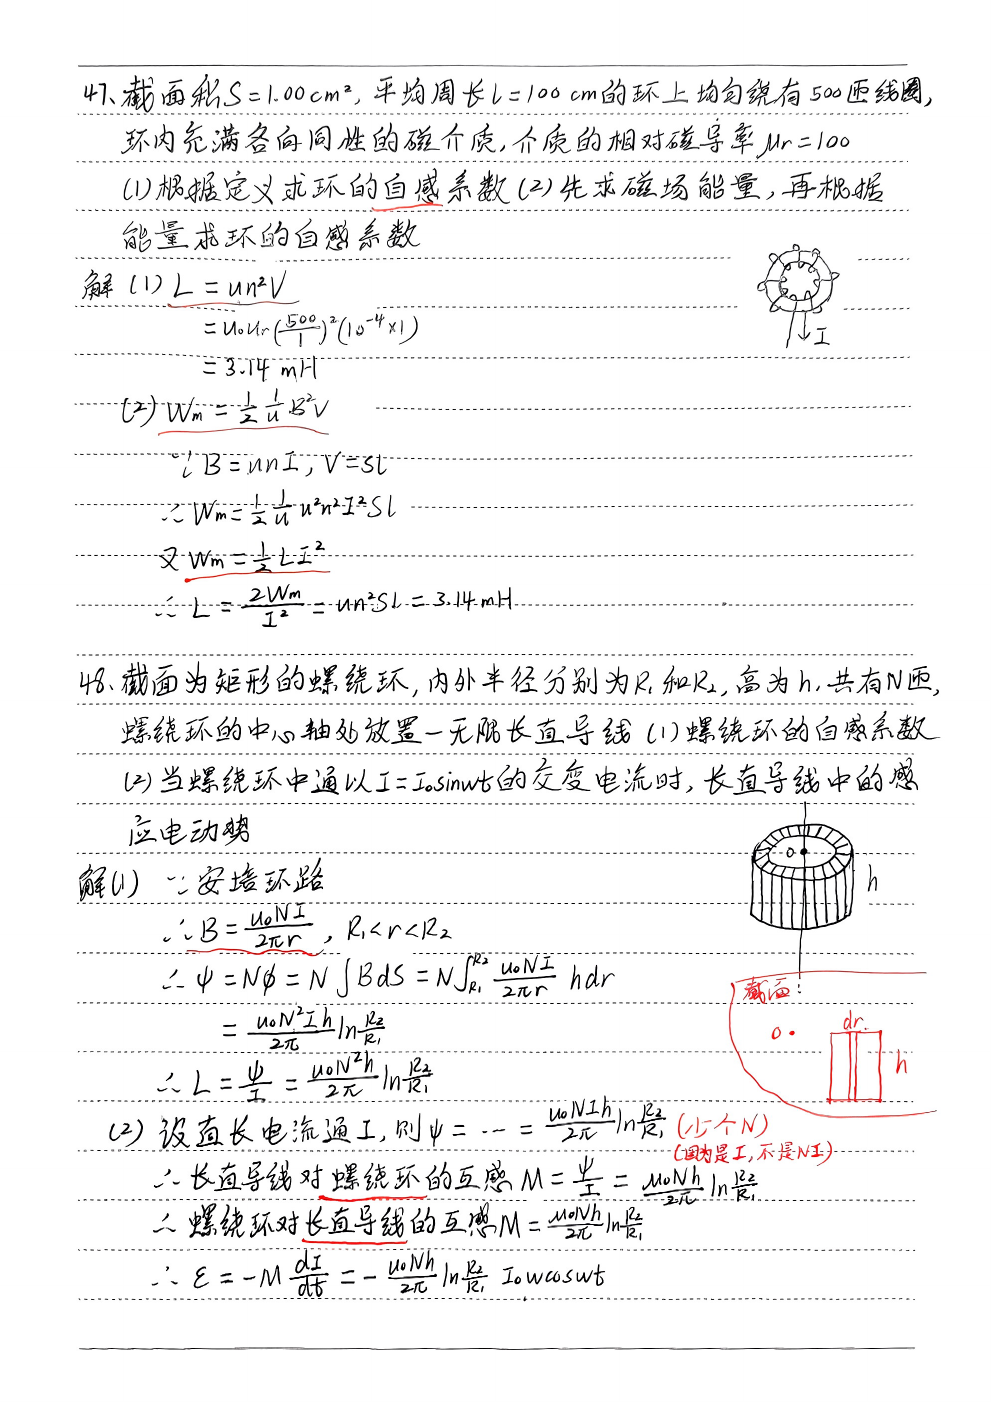 47、截面积S=1.00cm², 平均周长l=100 cm的环上均匀绕有500匝线圈,
环内充满各向同性的磁介质, 介质的相对磁导率μr=100
(1)根据定义求环的自感系数 (2)先求磁场能量, 再根据
能量求环的自感系数
解 (1) L = un²V
= u₀ur(500/1)²(10⁻⁴×1)
= 3.14 mH
I
(2) Wm = 1/2 1/u B²V
∵ B = unI, V=Sl
∴ Wm = 1/2 1/u u²n²I²Sl
又 Wm = 1/2 LI²
∴ L = 2Wm/I² = un²Sl = 3.14mH
48.截面为矩形的螺绕环, 内外半径分别为R₁和R₂, 高为h. 共有N匝,
螺绕环的中心轴处放置一无限长直导线 (1)螺绕环的自感系数
(2)当螺绕环中通以I=I₀sinwt的交变电流时, 长直导线中的感
应电动势
o
h
解(1) ∵安培环路
∴ B = u₀NI/2πr, R₁<r<R₂
∴ ψ = Nφ = N∫BdS = N∫_R₁^R₂ u₀NI/2πr hdr
截面:
o
dr.
h
= u₀N²Ih/2π ln R₂/R₁
∴ L = ψ/I = u₀N²h/2π ln R₂/R₁
(2) 设直长电流通I, 则ψ = … = u₀NIh/2π ln R₂/R₁ (少个N)
(因为是I, 不是NI)
∴ 长直导线对螺绕环的互感M = ψ/I = μ₀Nh/2π ln R₂/R₁
∴ 螺绕环对长直导线的互感M = μ₀Nh/2π ln R₂/R₁
∴ ε = -M dI/dt = - u₀Nh/2π ln R₂/R₁ I₀wcoswt